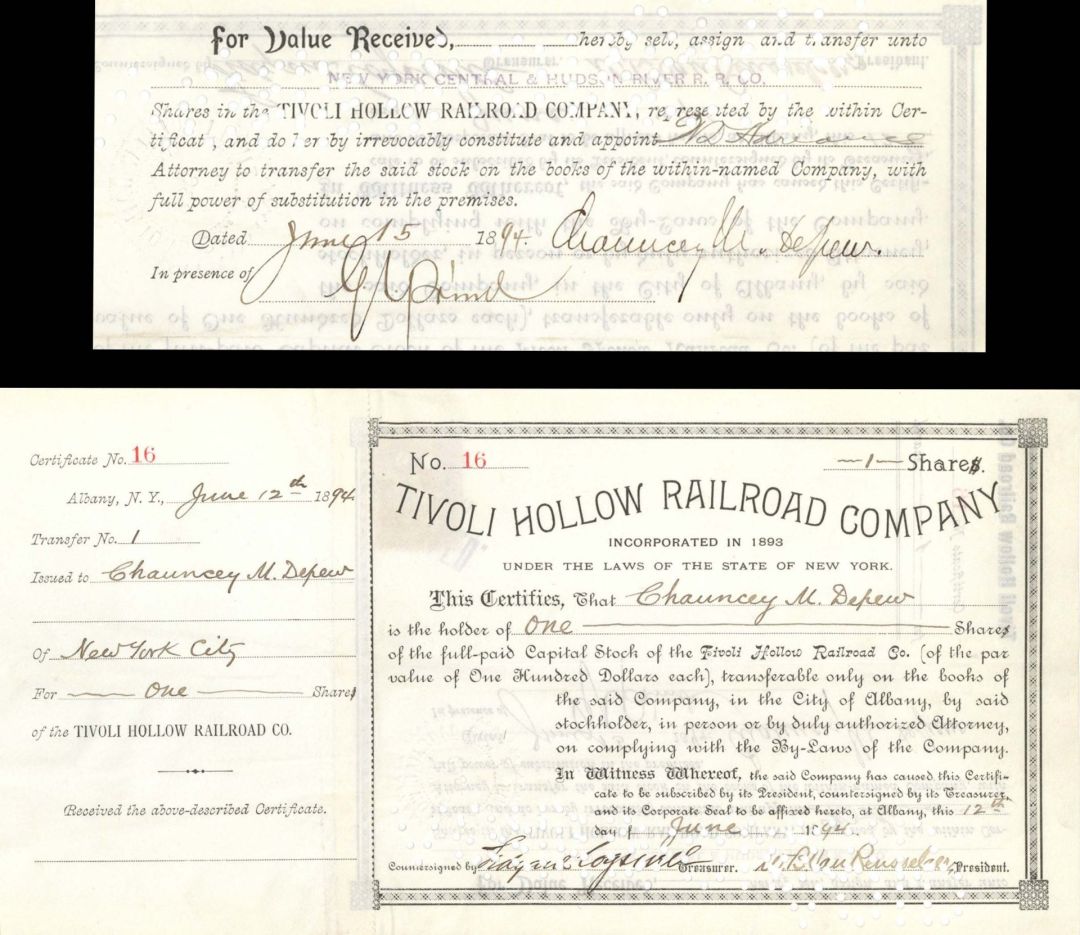 For Value Received, hereby sell, assign and transfer unto
NEW YORK CENTRAL & HUDSON RIVER R. R. CO.
Shares in the TIVOLI HOLLOW RAILROAD COMPANY, represented by the within Cer-
tificate, and do hereby irrevocably constitute and appoint
Attorney to transfer the said stock on the books of the within-named Company, with
full power of substitution in the premises.
Dated June 15 1894. Chauncey M. Depew.
In presence of
Certificate No. 16
Albany, N. Y., June 12th 1894
Transfer No. 1
Issued to Chauncey M. Depew
Of New York City
For One Shares
of the TIVOLI HOLLOW RAILROAD CO.
Received the above-described Certificate.
No. 16 —1— Shares.
TIVOLI HOLLOW RAILROAD COMPANY
INCORPORATED IN 1893
UNDER THE LAWS OF THE STATE OF NEW YORK.
This Certifies, That Chauncey M. Depew
is the holder of One Shares
of the full-paid Capital Stock of the Tivoli Hollow Railroad Co. (of the par
value of One Hundred Dollars each), transferable only on the books of
the said Company, in the City of Albany, by said
stockholder, in person or by duly authorized Attorney,
on complying with the By-Laws of the Company.
In Witness Whereof, the said Company has caused this Certifi-
cate to be subscribed by its President, countersigned by its Treasurer,
and its Corporate Seal to be affixed hereto, at Albany, this 12th
day of June 1894
Countersigned by Treasurer. Van Rensselaer, President.